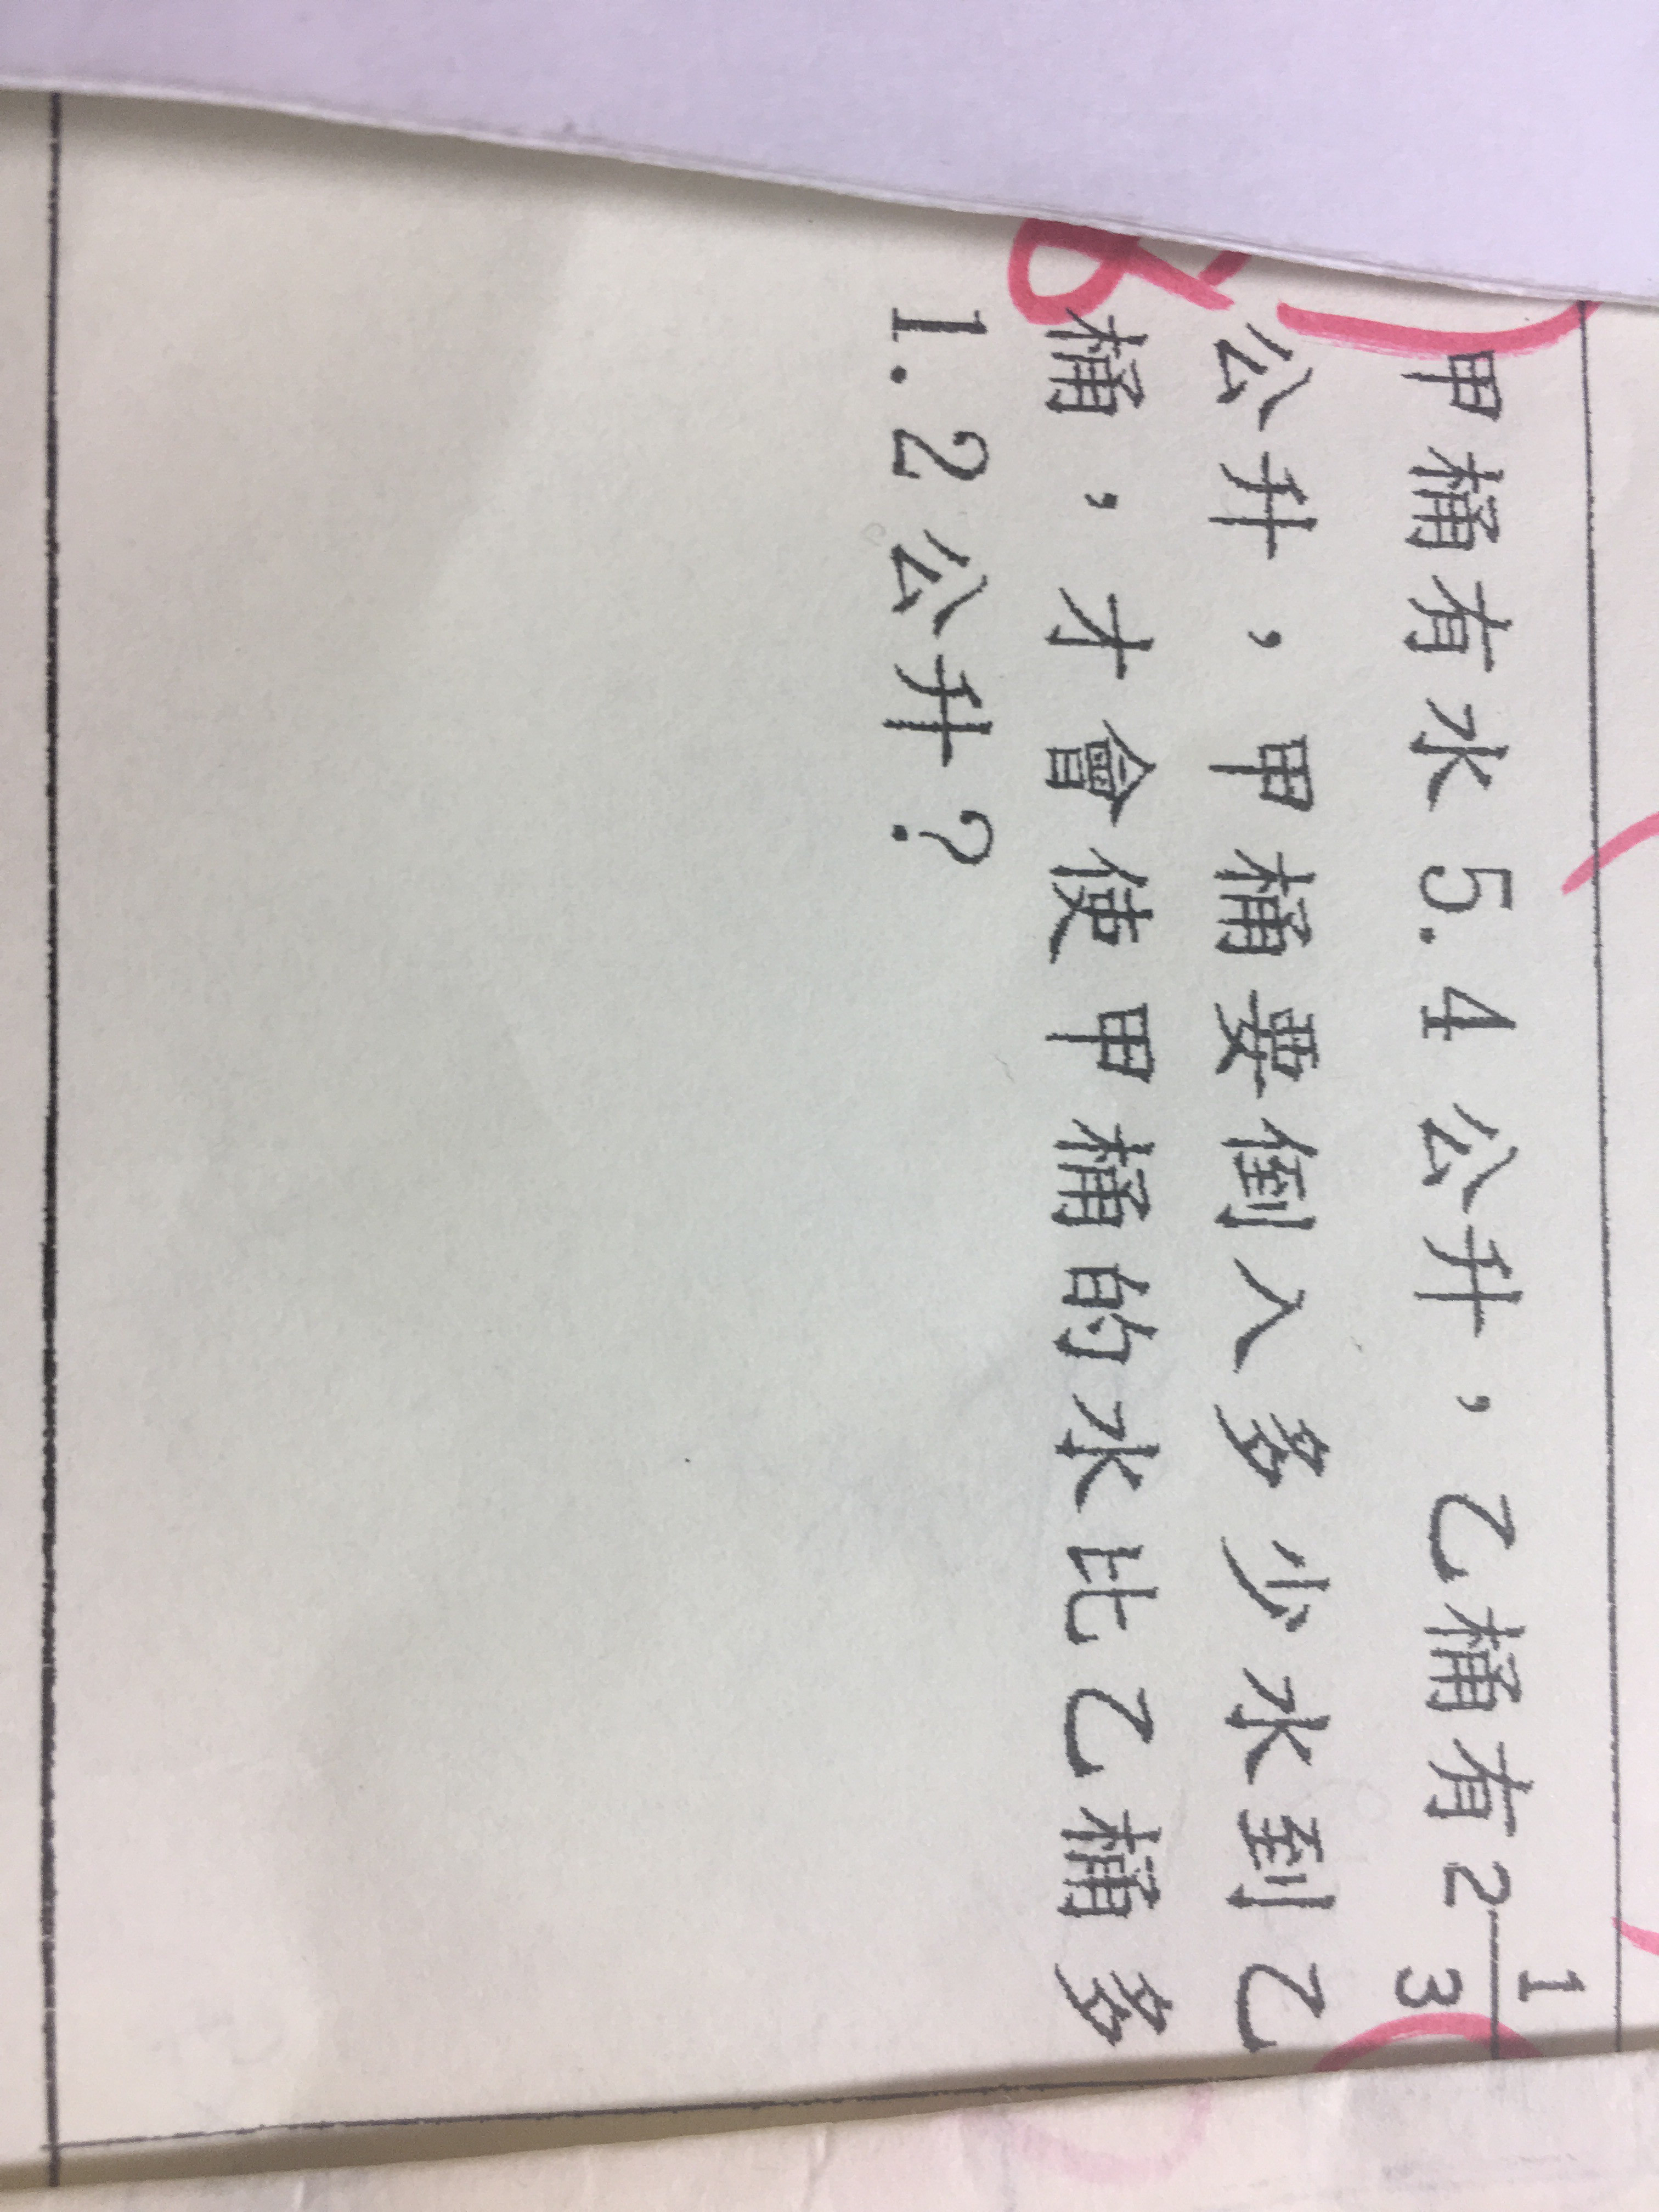 甲桶有水5.4公升，乙桶有2 1/3
公升，甲桶要倒入多少水到乙
桶，才會使甲桶的水比乙桶多
1.2公升？